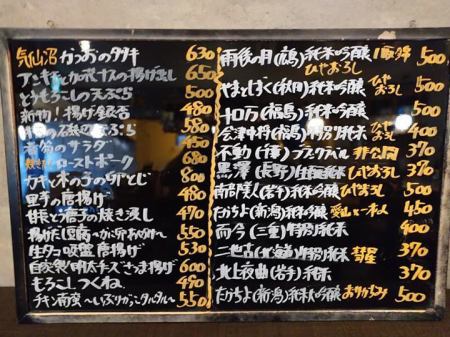 気仙沼 かつおのタタキ 630
アンキモとカボナスの揚げ出し 650
とうもろこしの天ぷら 500
新物!揚げ銀杏 480
天ぷら 580
サラダ 450
ローストポーク 680
カキと木の子の 800
里芋の唐揚げ 480
470
揚げだし豆腐 550
生タコ吸盤唐揚げ 530
自家製明太チーズさつま揚げ 600
もろこしつくね 490
チキン南蛮〜いぶりがっこタルタル〜 550
雨後の月(広島)純米吟醸 ひやおろし 500
やまとしずく(秋田)純米吟醸 ひやおろし 500
十ロ万(福島)純米吟醸 ひやおろし 500
会津中将(福島)特別純米 ひやおろし 400
不動(千葉) 非公開 370
黒澤(長野)生酛純米 ひやおろし 370
南部美人(岩手)純米吟醸 ひやおろし 500
たかちよ(新潟)純米吟醸 愛山 450
而今(三重)特別純米 400
二世古(北海道)特別純米 彗星 370
北上夜曲(岩手)純米 370
たかちよ(新潟)純米大吟醸 おりがらみ 500